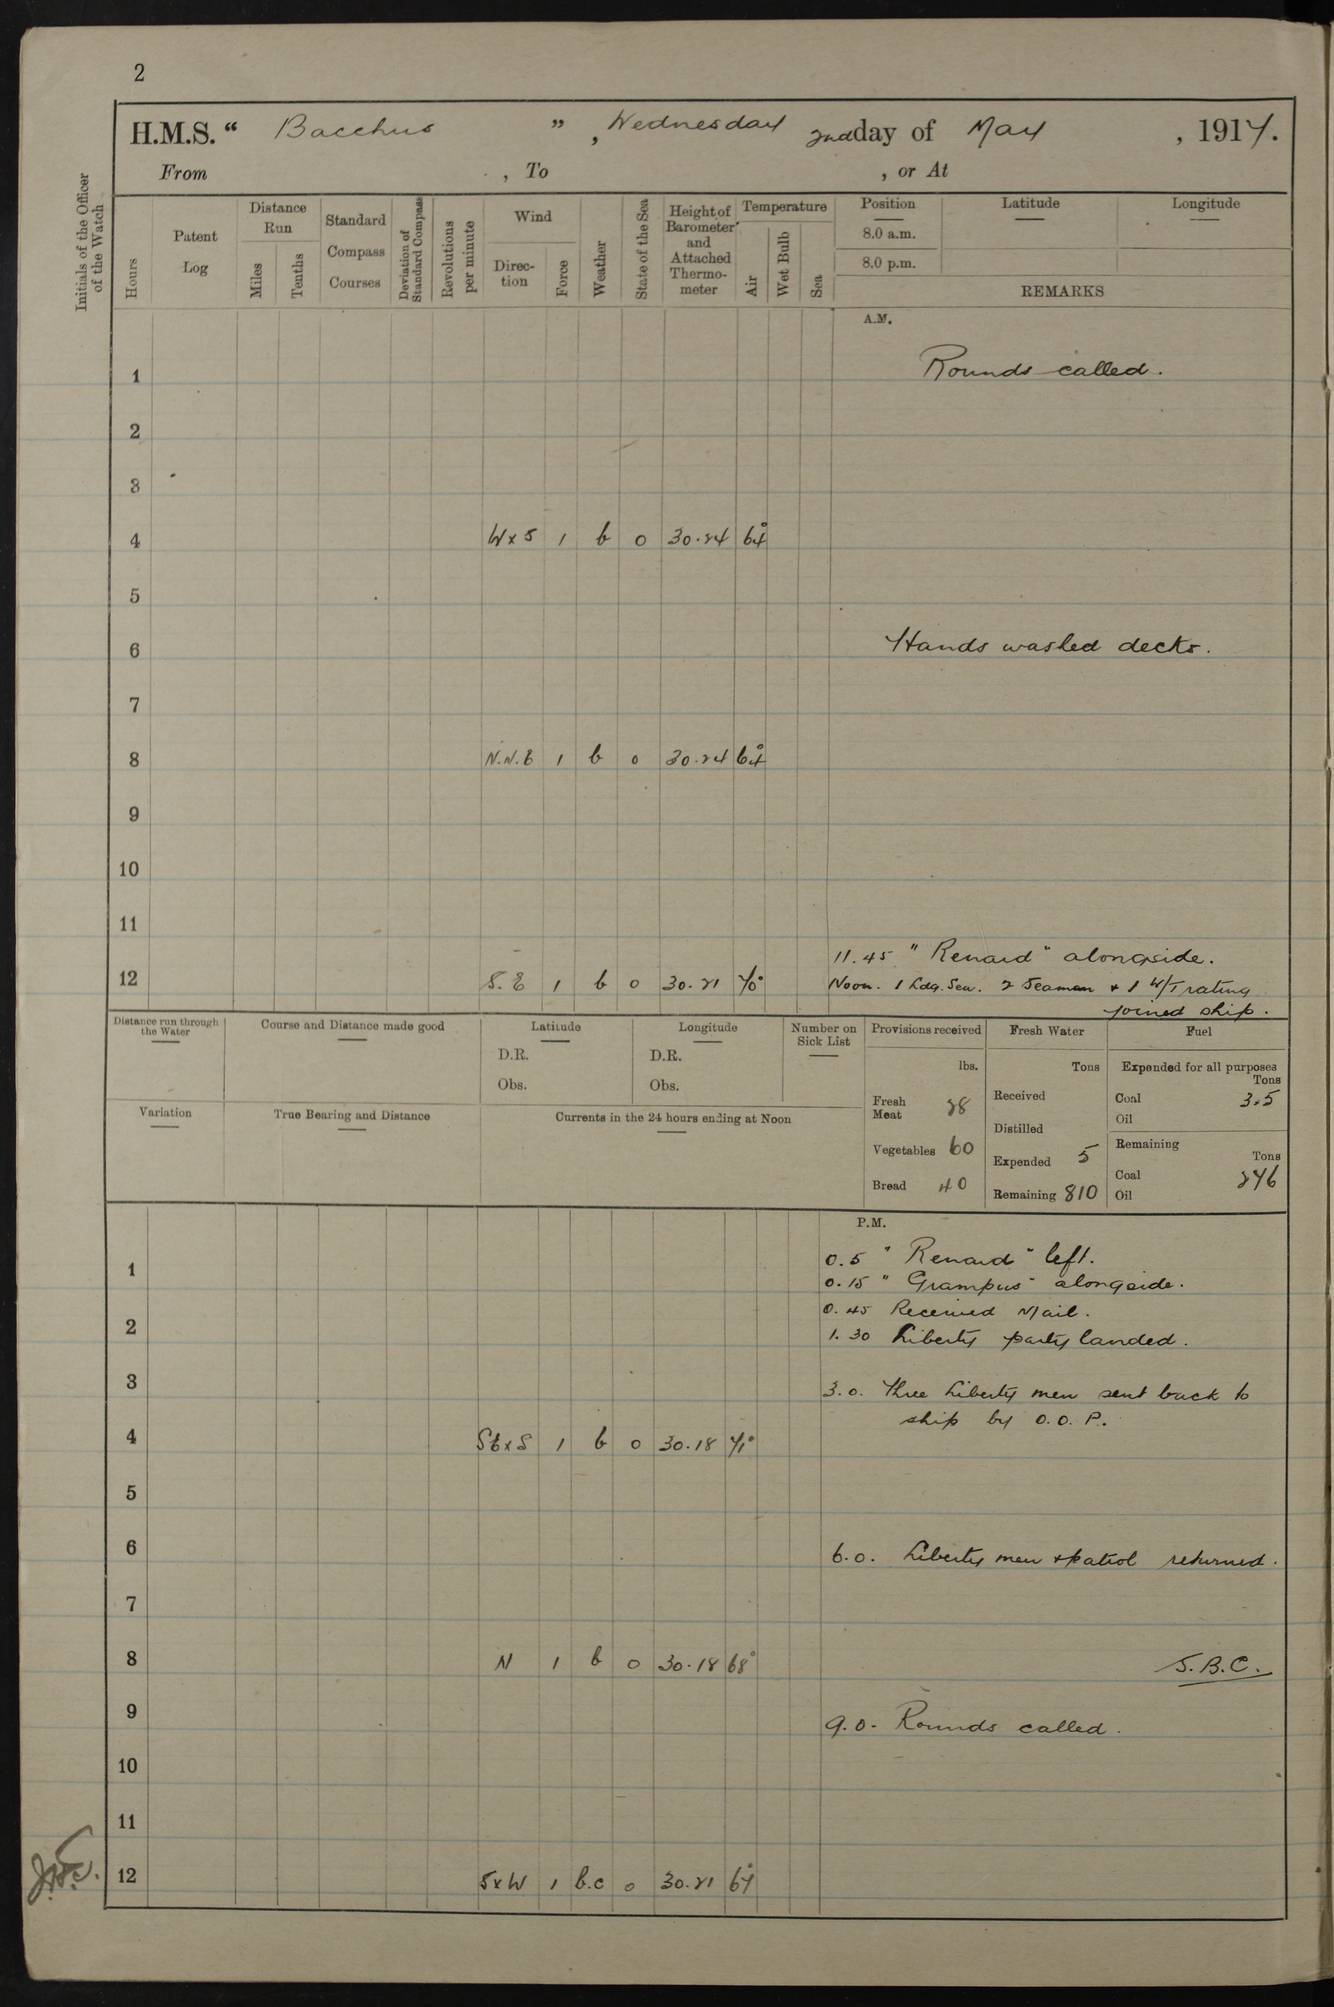 2
H.M.S. “ Bacchus ” , Wednesday 2nd day of May , 1917.
From , To , or At
Initials of the Officer of the Watch
Hours
Patent Log
Distance Run
Miles
Tenths
Standard Compass Courses
Deviation of Standard Compass
Revolutions per minute
Wind
Direc-tion
Force
Weather
State of the Sea
Height of Barometer and Attached Thermo-meter
Temperature
Air
Wet Bulb
Sea
Position Latitude Longitude
8.0 a.m.
8.0 p.m.
REMARKS
A.M.
1 Rounds called.
2
3
4 W x S 1 b 0 30.24 64°
5
6 Hands washed decks.
7
8 N.N.E 1 b 0 30.24 64°
9
10
11
11.45 "Renard" alongside.
12 S.E 1 b 0 30.21 70° Noon. 1 Ldg. Sea. 2 Seamen + 1 W/T rating
joined ship.
Distance run through the Water
Course and Distance made good
Latitude
D.R.
Obs.
Longitude
D.R.
Obs.
Number on Sick List
Provisions received
lbs.
Fresh Meat 28
Vegetables 60
Bread 40
Fresh Water
Tons
Received
Distilled
Expended 5
Remaining 810
Fuel
Expended for all purposes
Tons
Coal 3.5
Oil
Remaining
Tons
Coal 246
Oil
Variation
True Bearing and Distance
Currents in the 24 hours ending at Noon
P.M.
0.5 "Renard" left.
1
0.15 "Grampus" alongside.
0.45 Received Mail.
2
1.30 Liberty party landed.
3 3.0. Three Liberty men sent back to
ship by O.O.P.
4 SE x S 1 b 0 30.18 71°
5
6 6.0. Liberty men + patrol returned.
7
8 N 1 b 0 30.18 68° S.B.C.
9 9.0. Rounds called.
10
11
12 S x W 1 b.c 0 30.21 67°